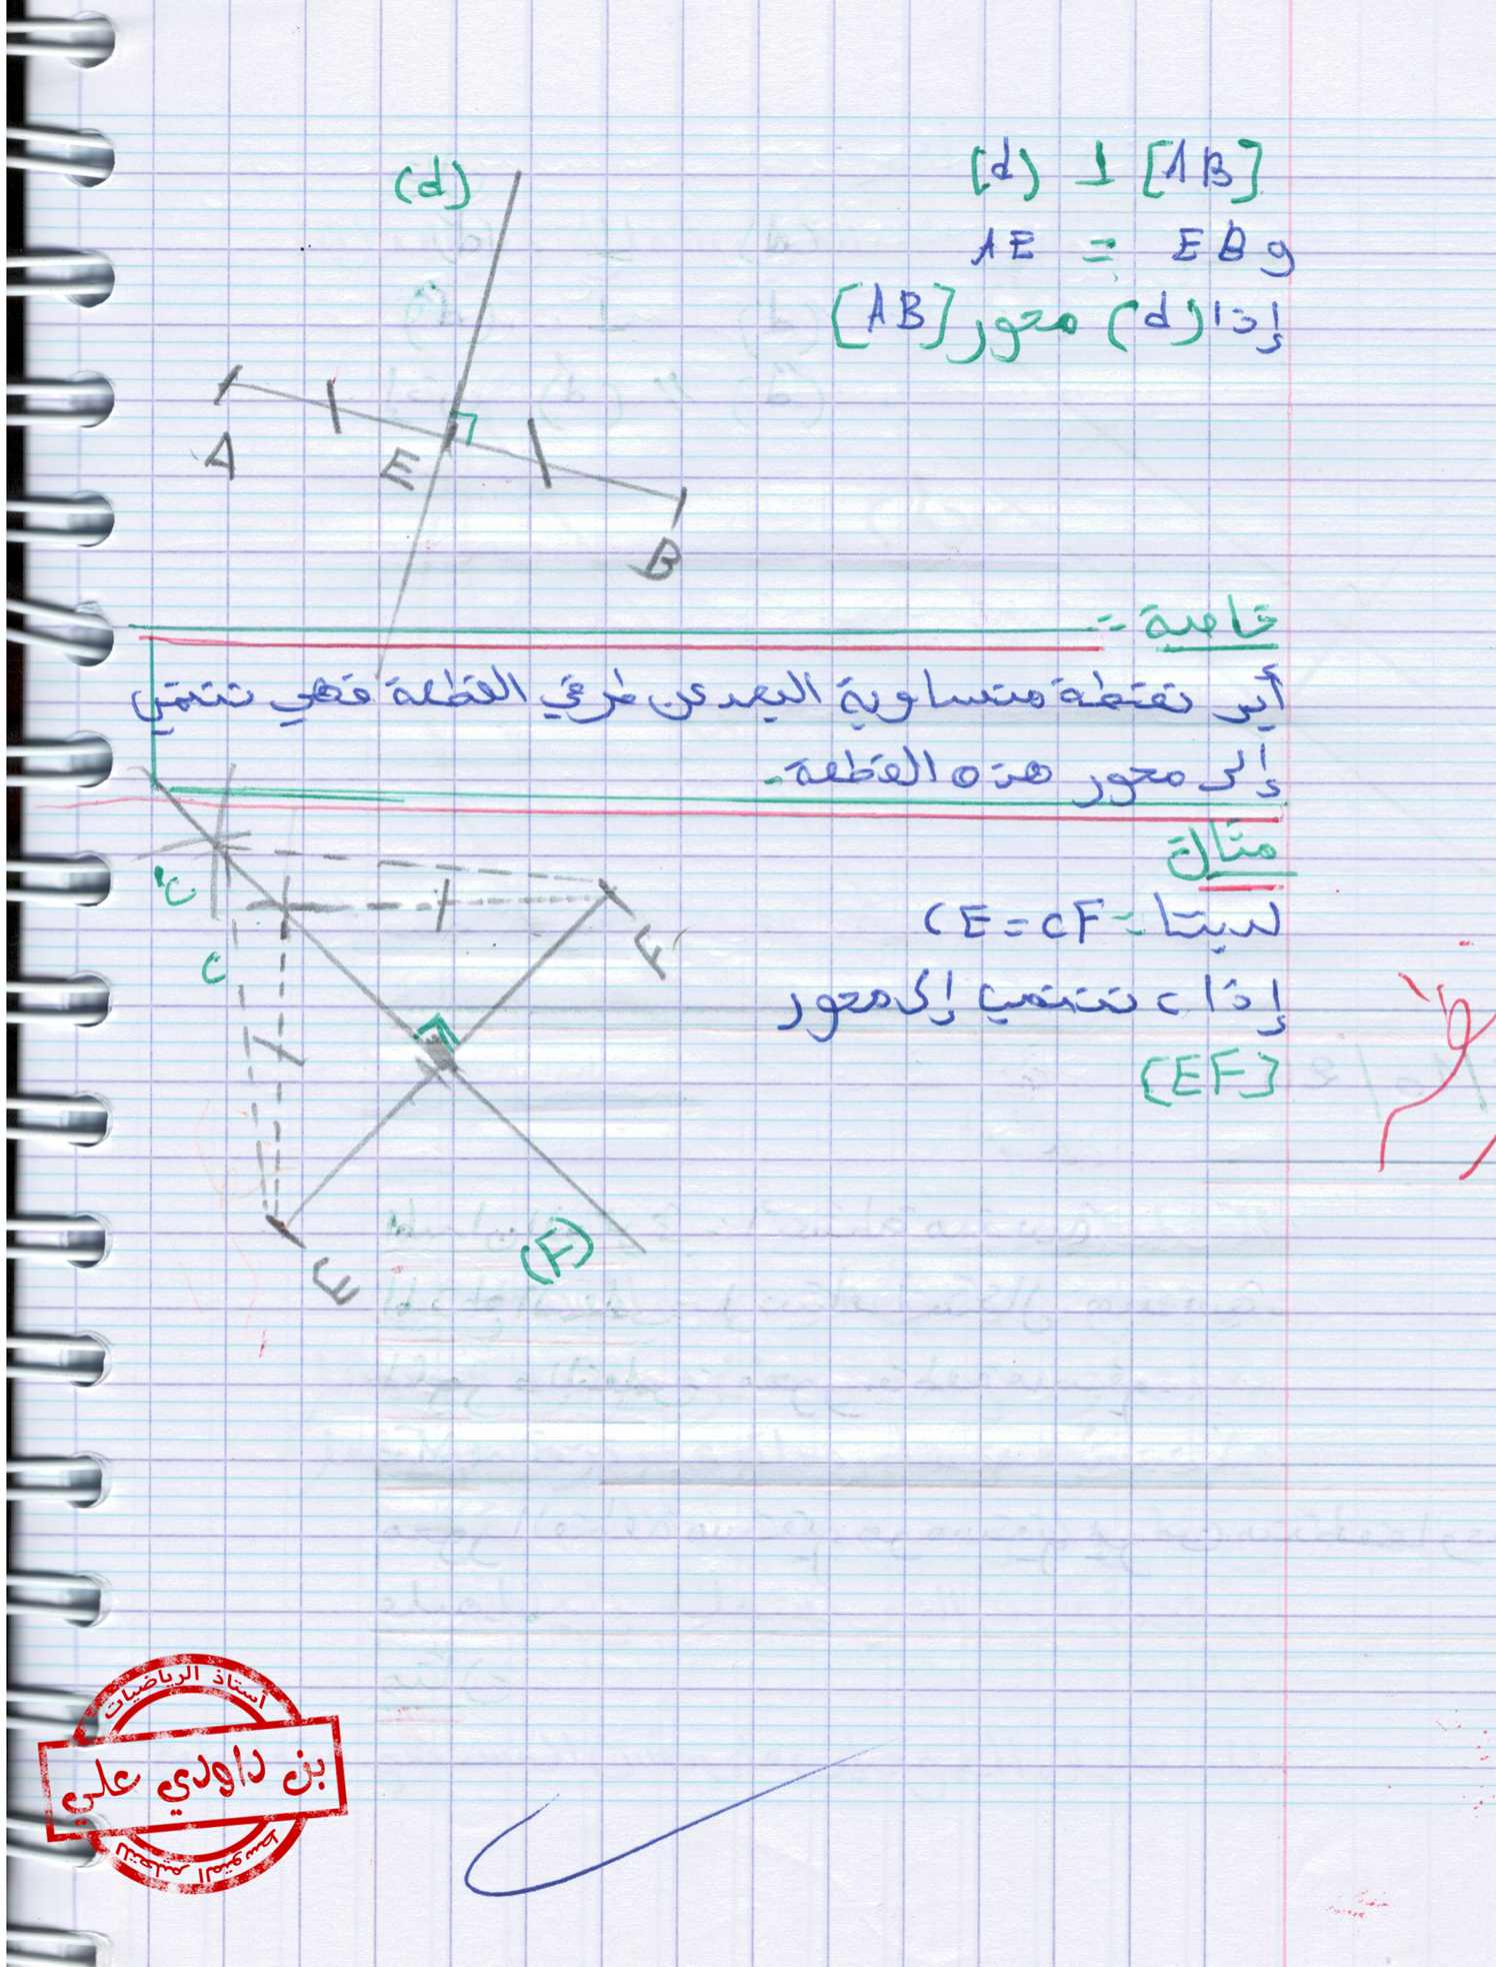 (d) ⊥ [AB]
AE = EB و
إذا (d) محور [AB]
(d)
A
E
B
خاصة :-
أير نقطة متساوية البعد عن طرفي القطعة فهي تنتمي
إلى محور هذه القطعة.
مثال
لدينا = CE = CF
إذا c تنتمي إلى محور
[EF]
C'
C
F
E
(F)
أستاذ الرياضيات
بن داودي علي
للتعليم المتوسط